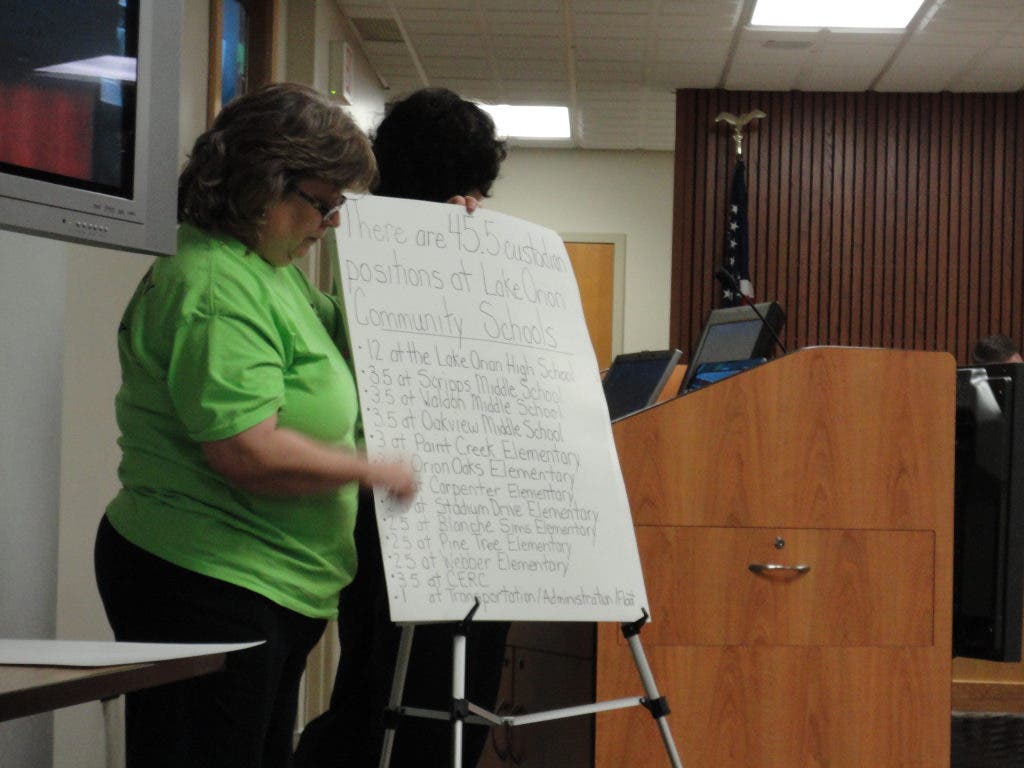 There are 45.5 custodian
positions at Lake Orion
Community Schools
• 12 at the Lake Orion High School
• 3.5 at Scripps Middle School
• 3.5 at Waldon Middle School
• 3.5 at Oakview Middle School
• 3 at Paint Creek Elementary
Orion Oaks Elementary
Carpenter Elementary
at Stadium Drive Elementary
• 2.5 at Blanche Sims Elementary
• 2.5 at Pine Tree Elementary
• 2.5 at Webber Elementary
• 3.5 at CERC
• 1 at Transportation/Administration/Float